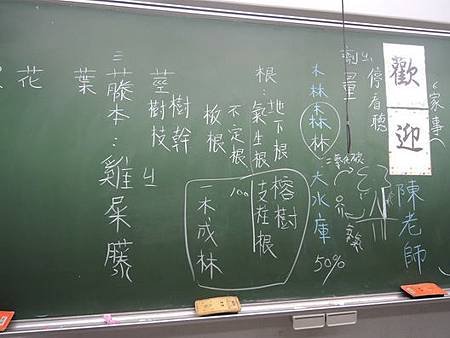 歡迎
陳老師
家專
停看聽
木林森森林
大水庫
50%
根：
地下根
氣生根
不定根
板根
榕樹
支柱根
100
一木成林
莖
樹幹
樹枝
藤本：雞屎藤
葉
花